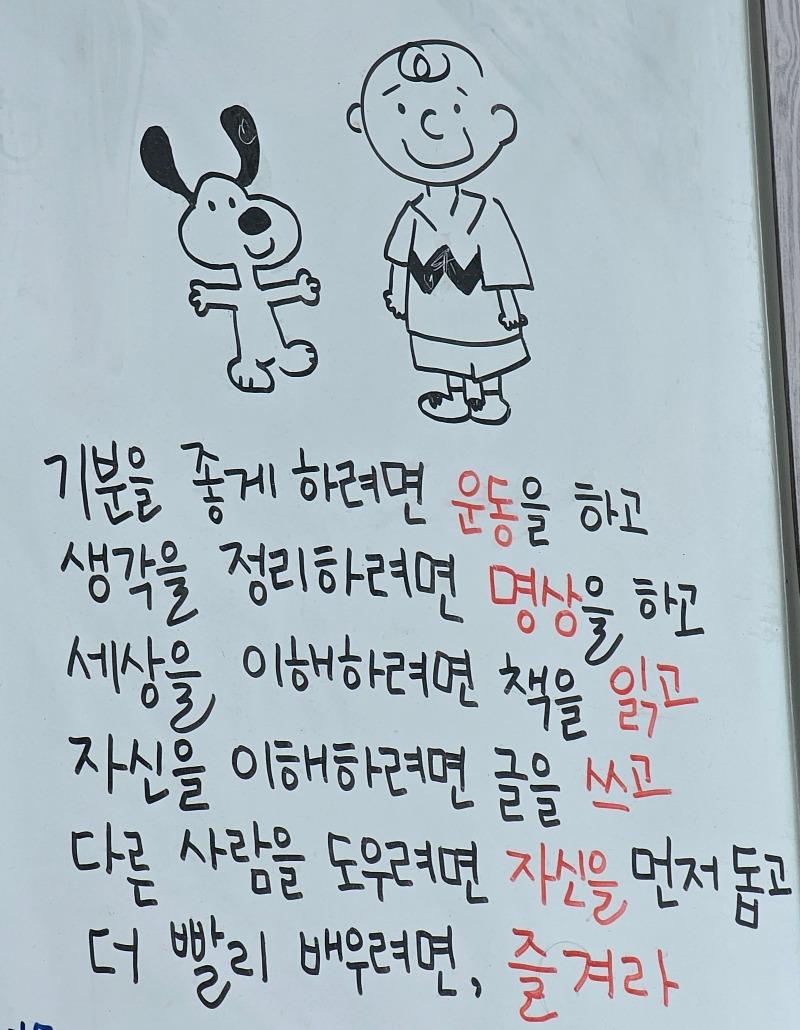 기분을 좋게 하려면 운동을 하고
생각을 정리하려면 명상을 하고
세상을 이해하려면 책을 읽고
자신을 이해하려면 글을 쓰고
다른 사람을 도우려면 자신을 먼저 돕고
더 빨리 배우려면, 즐겨라